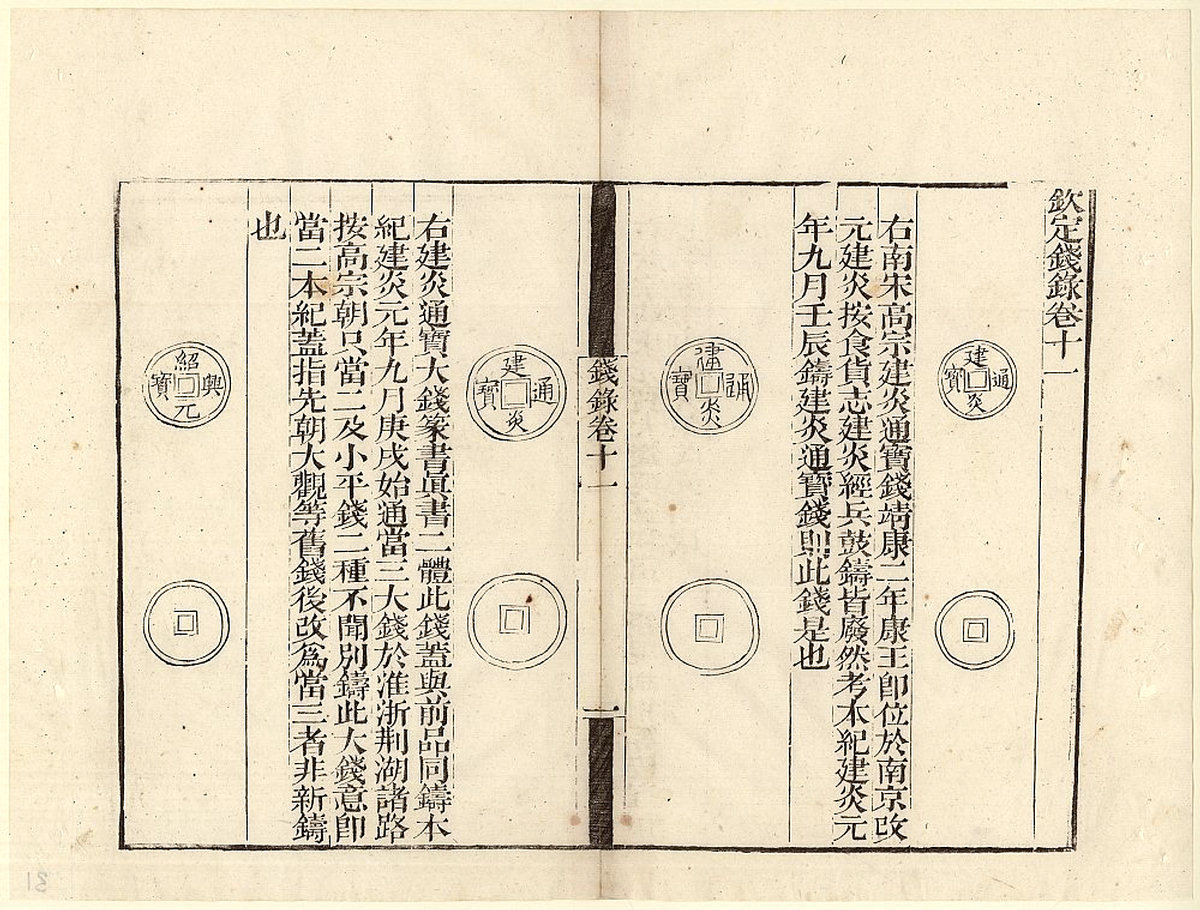 欽定錢錄卷十一
建炎通寶
右南宋高宗建炎通寶錢靖康二年康王卽位於南京改
元建炎按食貨志建炎經兵鼓鑄皆廢然考本紀建炎元
年九月壬辰鑄建炎通寶錢則此錢是也
建炎通寶
錢錄卷十一
一
建炎通寶
右建炎通寶大錢篆書眞書二體此錢蓋與前品同鑄本
紀建炎元年九月庚戌始通當三大錢於淮浙荆湖諸路
按高宗朝只當二及小平錢二種不聞別鑄此大錢意卽
當二本紀蓋指先朝大觀等舊錢後改爲當三者非新鑄
也
紹興元寶
31